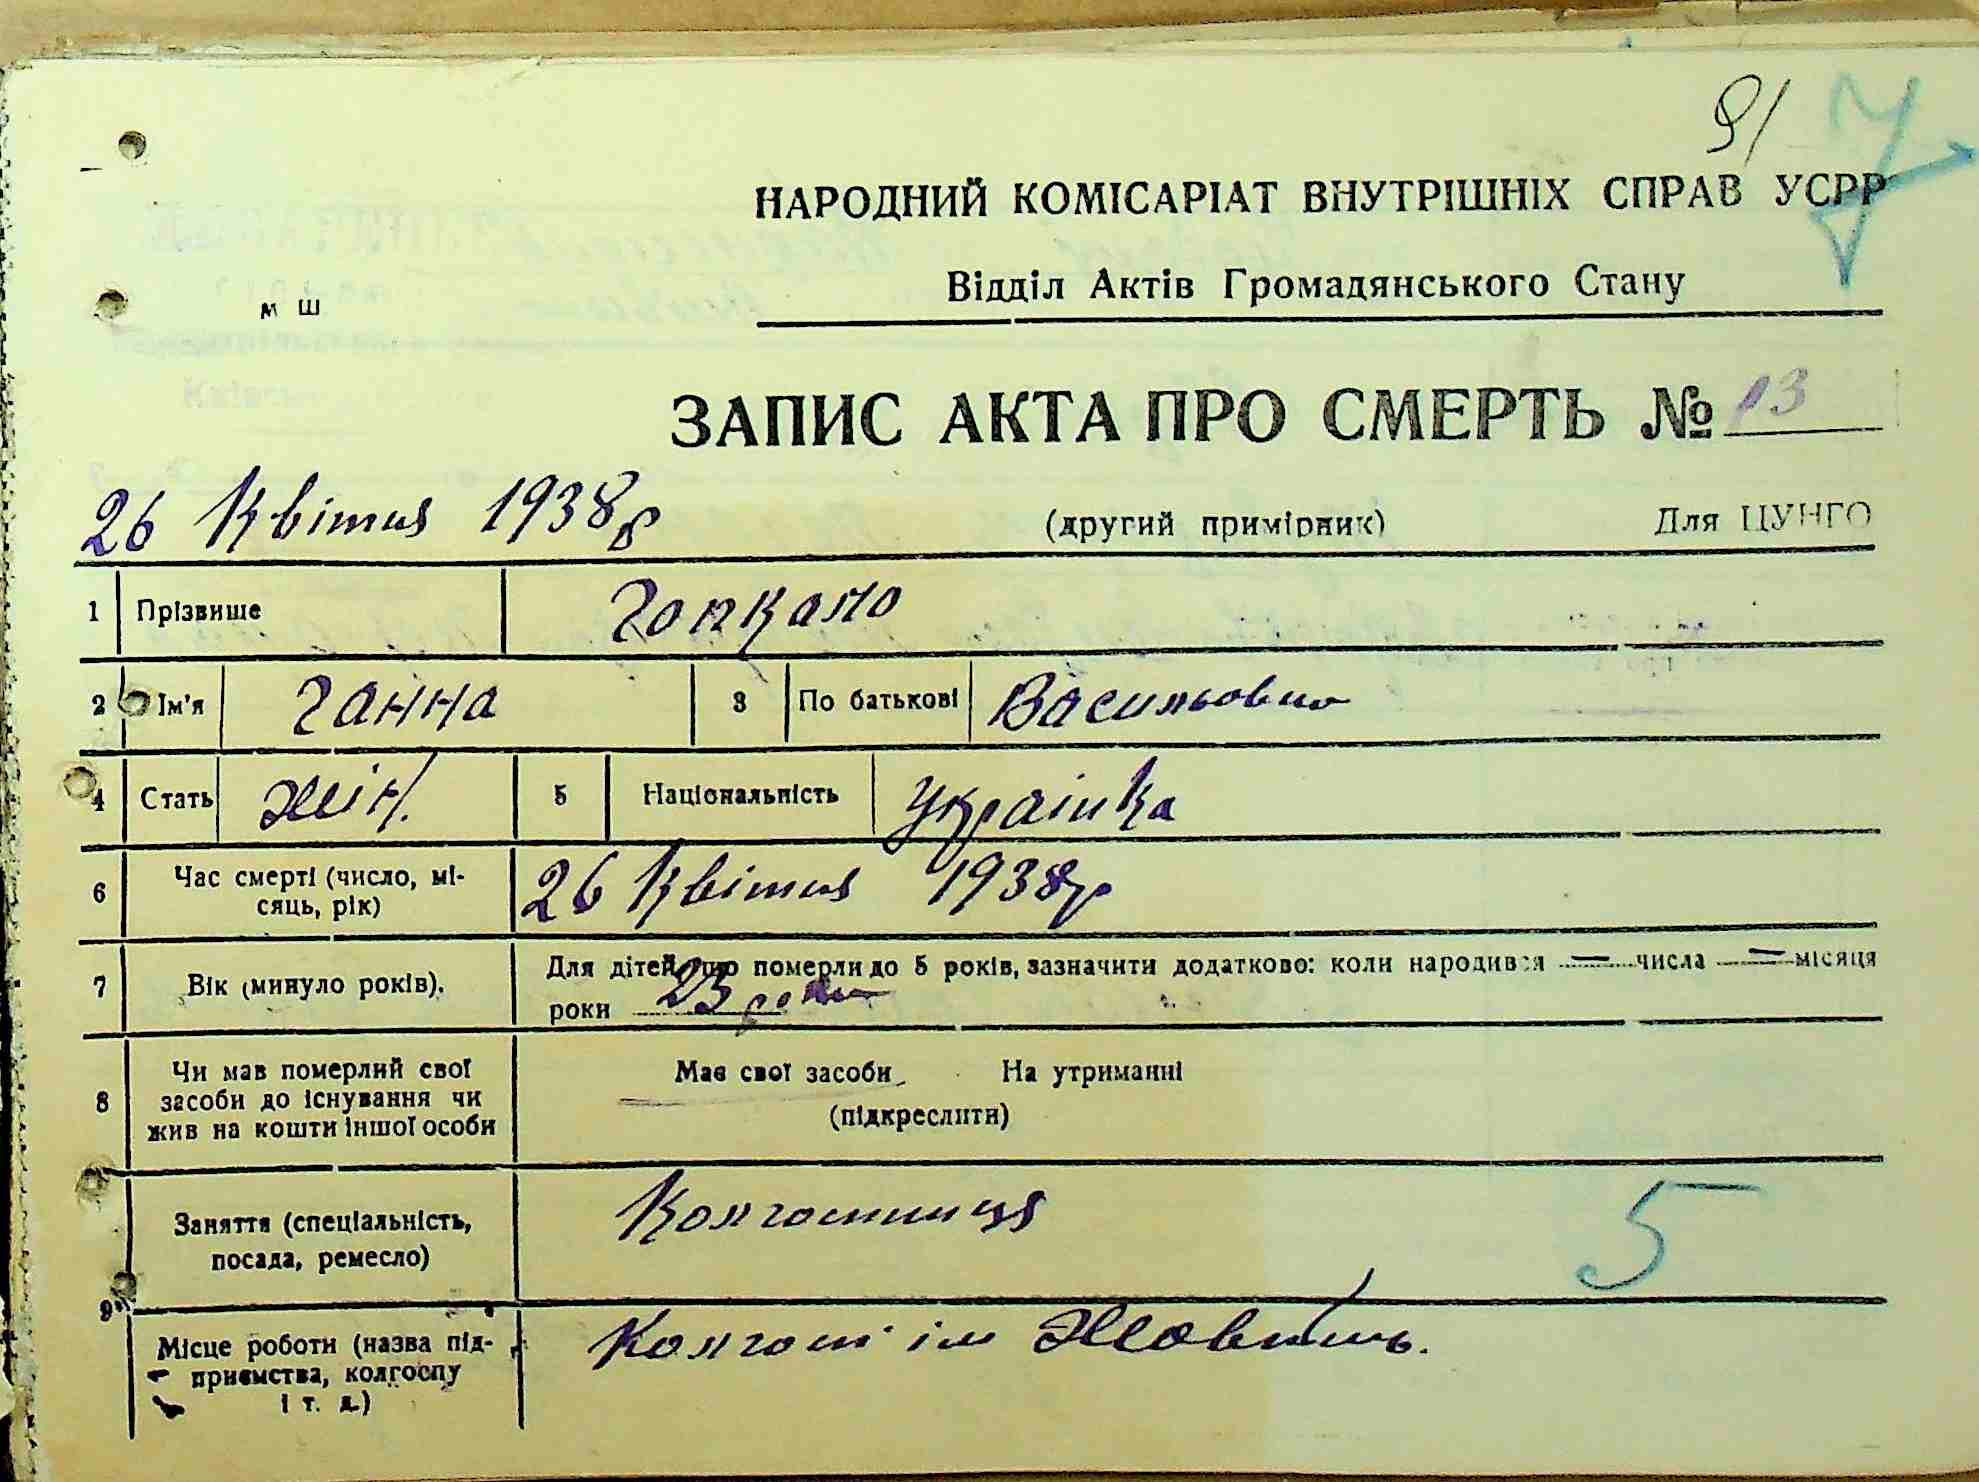 91 7
НАРОДНИЙ КОМІСАРІАТ ВНУТРІШНІХ СПРАВ УСРР
Відділ Актів Громадянського Стану
м ш
ЗАПИС АКТА ПРО СМЕРТЬ № 13
26 Квітня 1938 р
(другий примірник) Для ЦУНГО
1 Прізвище Гопкало
2 Ім'я Ганна 3 По батькові Васильовна
4 Стать жін. 5 Національність Українка
6 Час смерті (число, мі-
сяць, рік) 26 Квітня 1938 р
7 Вік (минуло років). Для дітей, що померли до 5 років, зазначити додатково: коли народився — числа — місяця
роки 23 роки
8 Чи мав померлий свої
засоби до існування чи
жив на кошти іншої особи
Має свої засоби На утриманні
(підкреслити)
Заняття (спеціальність,
посада, ремесло) Колгоспниця 5
9
Місце роботи (назва під-
приємства, колгоспу
і т. д.) Колгосп ім Жовтень.